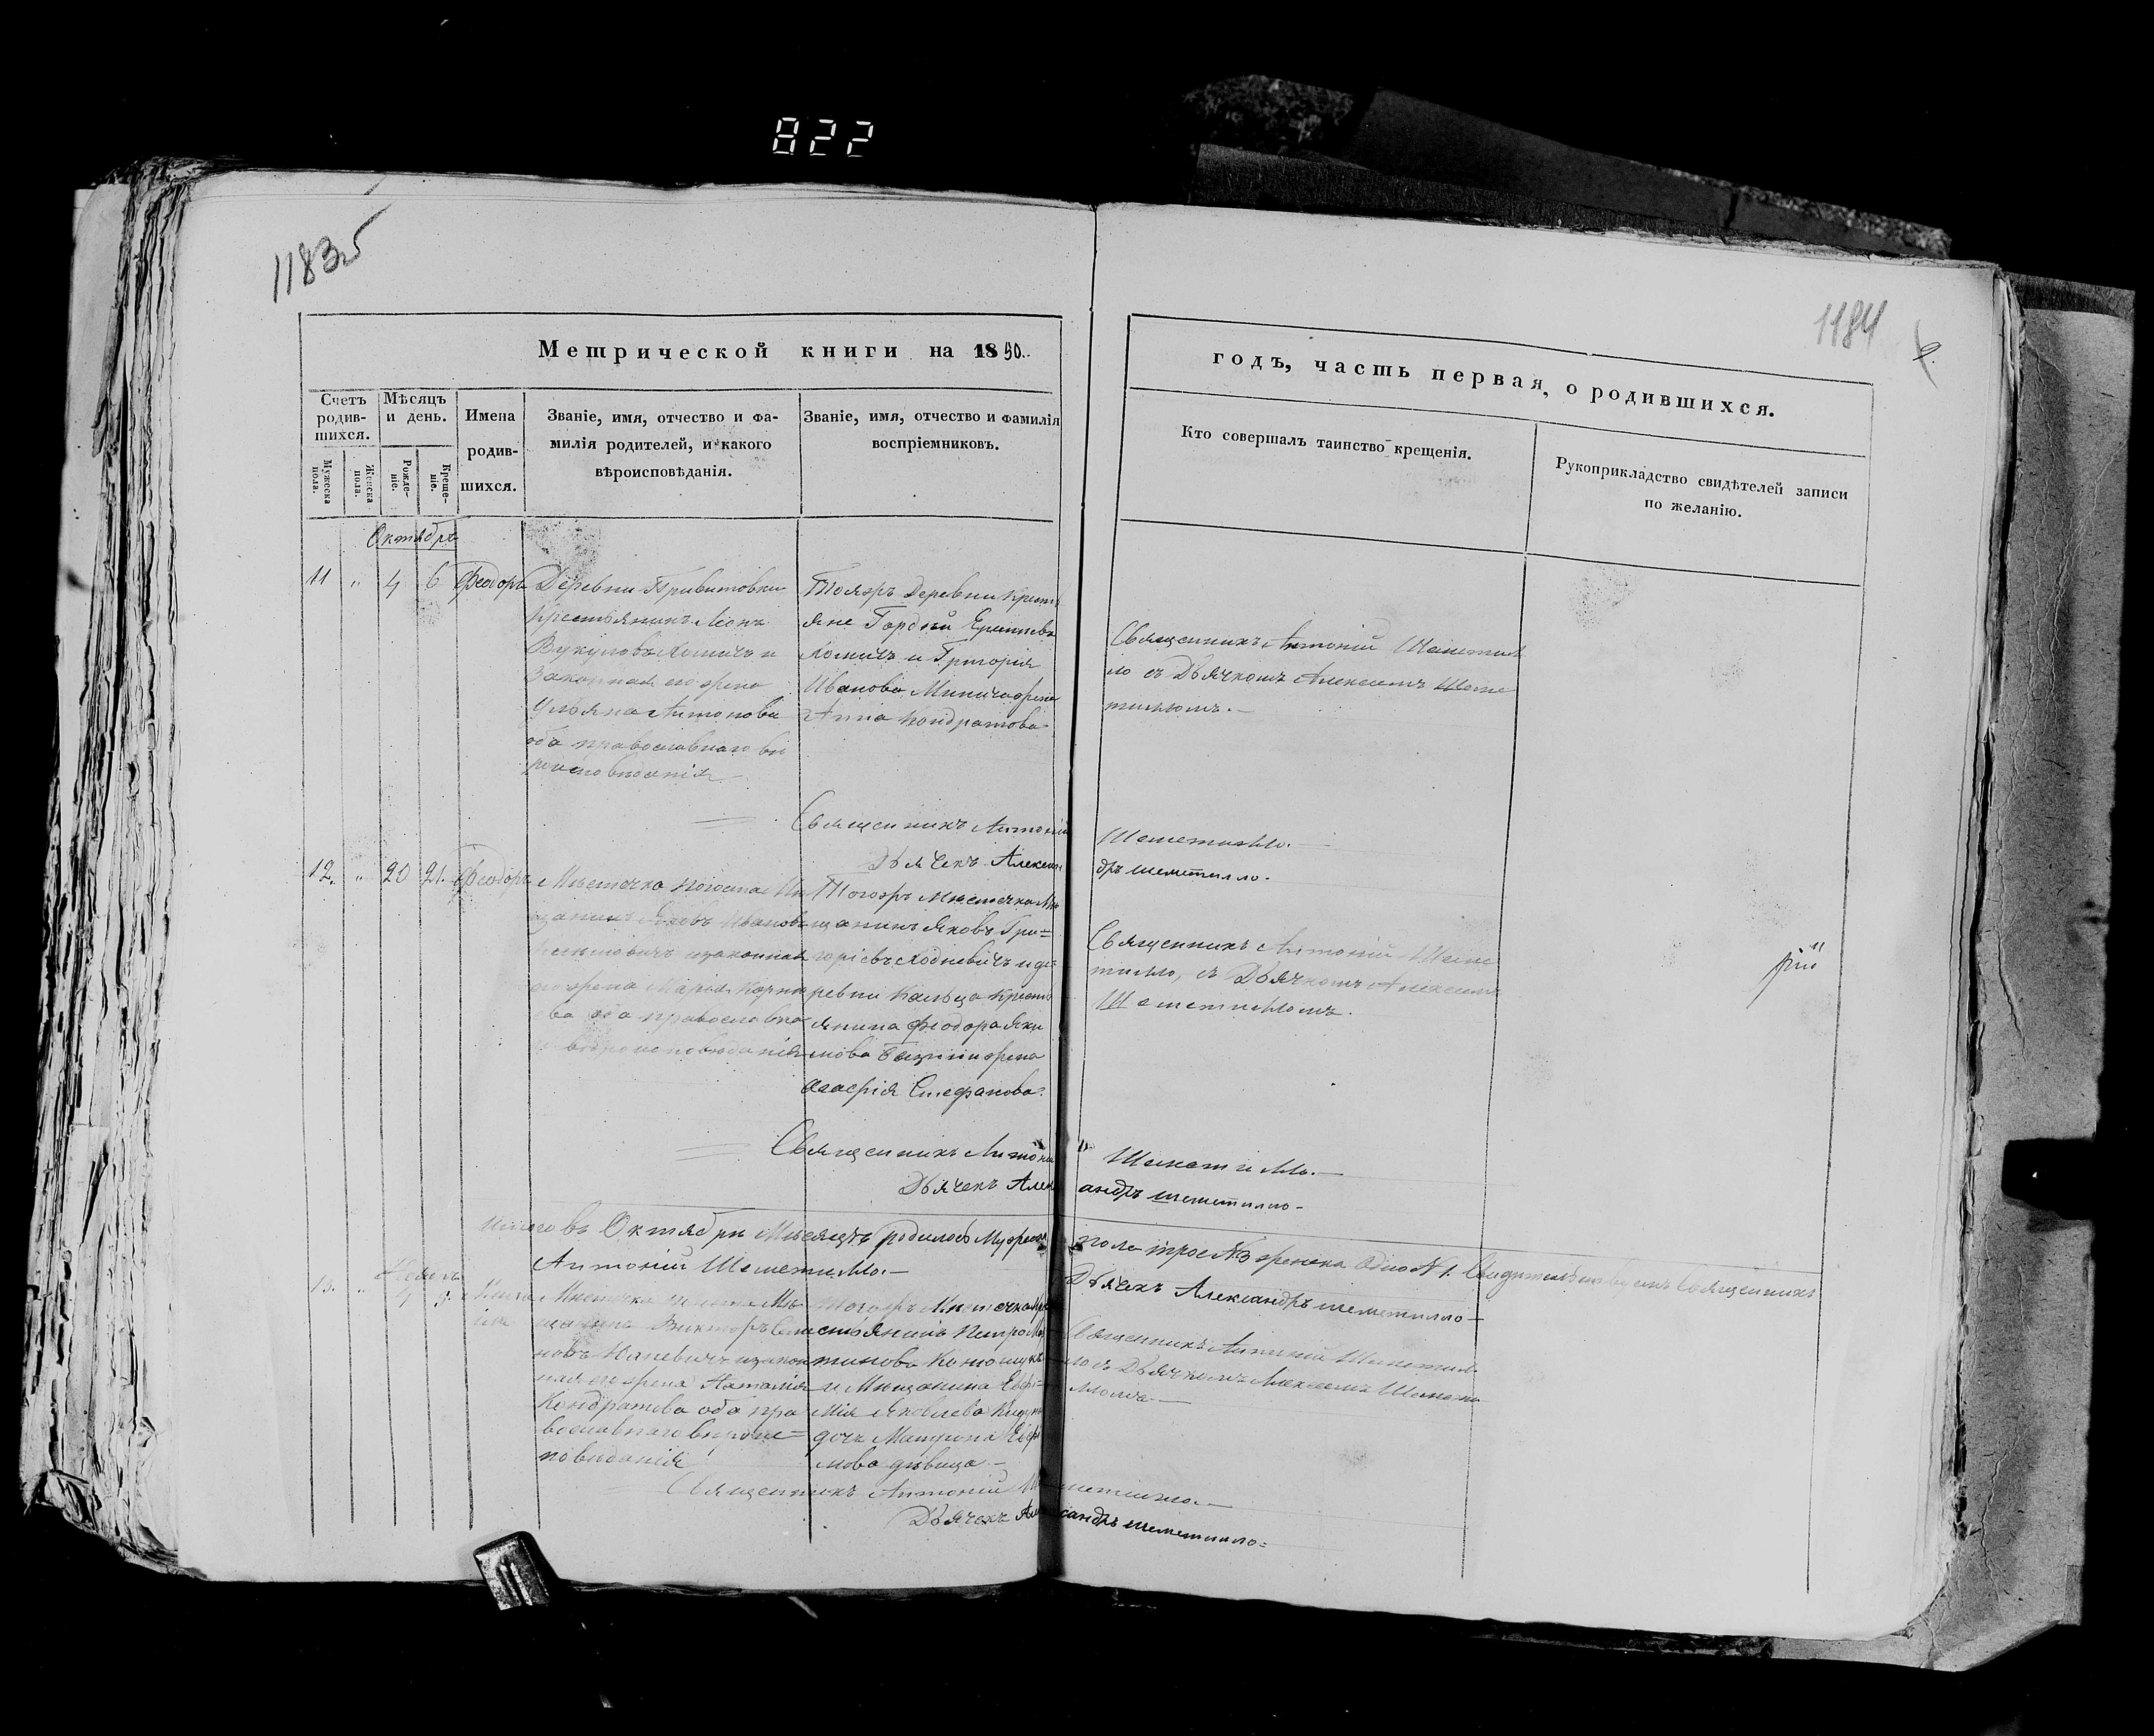 822
1183об
1184
9.
Метрической книги на 1850.
годъ, часть первая, о родившихся.
Счетъ родив-шихся.
Мужеска пола.
Женска пола.
Мѣсяцъ и день.
Рожде-ніе.
Креще-ніе.
Имена родив-шихся.
Званіе, имя, отчество и фа-
милія родителей, и какого
вѣроисповѣданія.
Званіе, имя, отчество и фамилія
воспріемниковъ.
Кто совершалъ таинство крещенія.
Рукоприкладство свидѣтелей записи
по желанію.
Октябрь
11 " 4 6 Феодоръ
Деревни
Крестьянинъ Леонъ
Вукуловъ Хомичъ и
Законная его жена
Ульяна Антонова
оба православнаго вѣ
роисповѣданія
Тояжъ Деревни Кресть
яне Гордѣй
Хомичъ и Григорія
Иванова Минича жена
Анна Кондратова
Священникъ Антоній Шеметил
ло съ Дьячкомъ Алексеемъ Шеме
тилломъ.
Священникъ Антоній Шеметилло.
Дьячекъ Александръ шеметилло.
12. " 20 21. Феодоръ
Мѣстечка Погоста Мѣ
щанинъ Яковъ Ивановъ
изаконная
его жена Марія Корни
ева оба православна
го вѣроисповѣданія
Тогожъ Мѣстечка Мѣ
щанинъ Яковъ Гри=
горіевъ Ходневичъ и де
ревни Кальца Кресть
янина Феодора Яки
мова жена
Агафія Стефанова.
Священникъ Антоній Шеме
тилло, съ Дьячкомъ Алексеемъ
Шеметилломъ.
Священникъ Антоній Шеметилло.
Дьячекъ Александръ шеметилло
Итого въ Октябрѣ Мѣсяцѣ родилось Мужеска пола трое №3 женска Одно №1. Священникъ
Антоній Шеметилло.
Дьячекъ Александръ шеметилло
13. " 4 5.
Мѣстечка Погоста Мѣ
щанинъ Викторъ
новъ изакон
ная его жена Наталія
Кондратова оба пра
вославнаго вѣроис=
повѣданія
Тогожъ Мѣстечка Кре
стьянинъ Петро
и Мѣщанина Евфи
мія Яковлева
дочь Матрона Евфи
мова дѣвица
Священникъ Антоній Шеметил
ло съ Дьячкомъ Алексеемъ Шемети
лломъ
Священникъ Антоній Шеметилло.
Дьячекъ Александръ шеметилло=